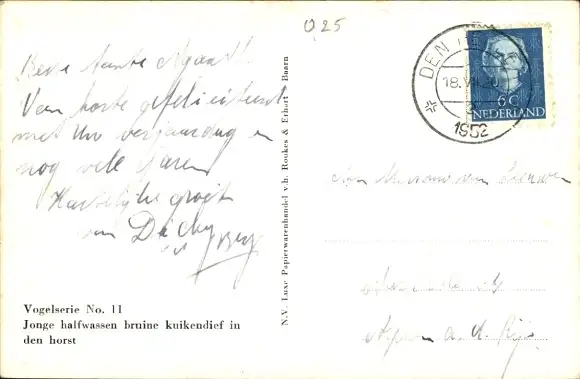 0,25
Beste tante
Van harte gefeliciteerd
met Uw verjaardag en
nog vele Jaren
Hartelijke groet
van Dicky
Vogelserie No. 11
Jonge halfwassen bruine kuikendief in
den horst
N.V. Luxe Papierwarenhandel v.h. Roukes & Erhart Baarn
DEN
18.VII
1952
6 C
NEDERLAND
Aan Mevrouw van Leeuwen
Alphen a. d. Rijn